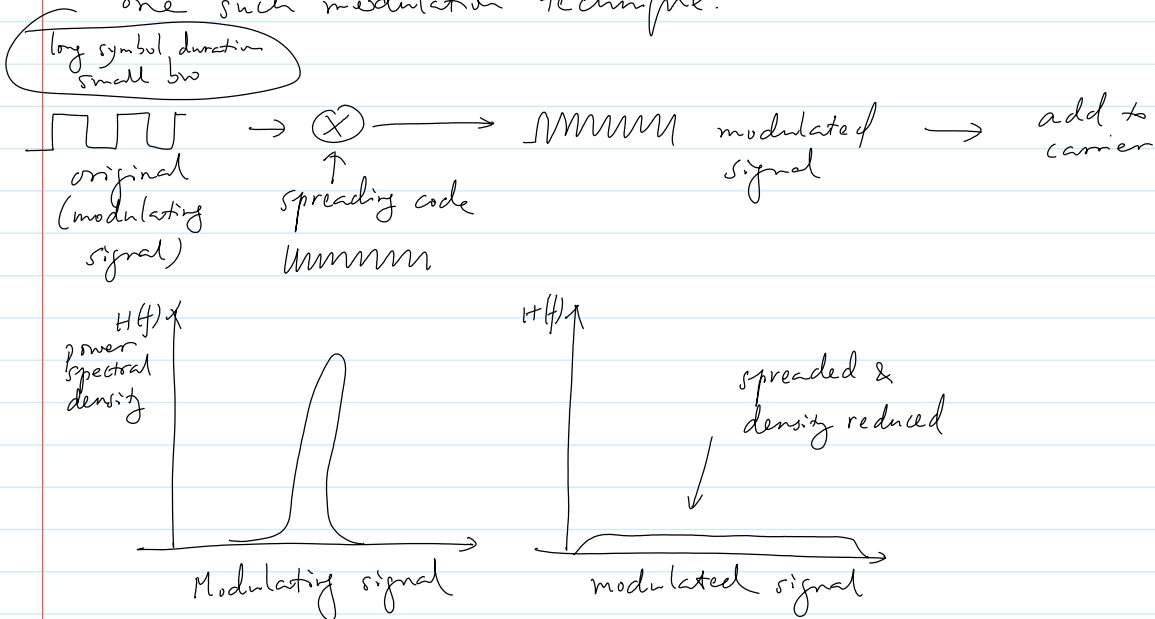 one such modulation technique.
long symbol duration
small bw
original
(modulating
signal)
X
spreading code
modulated
signal
add to
carrier
H(f)
power
spectral
density
Modulating signal
H(f)
spreaded &
density reduced
modulated signal